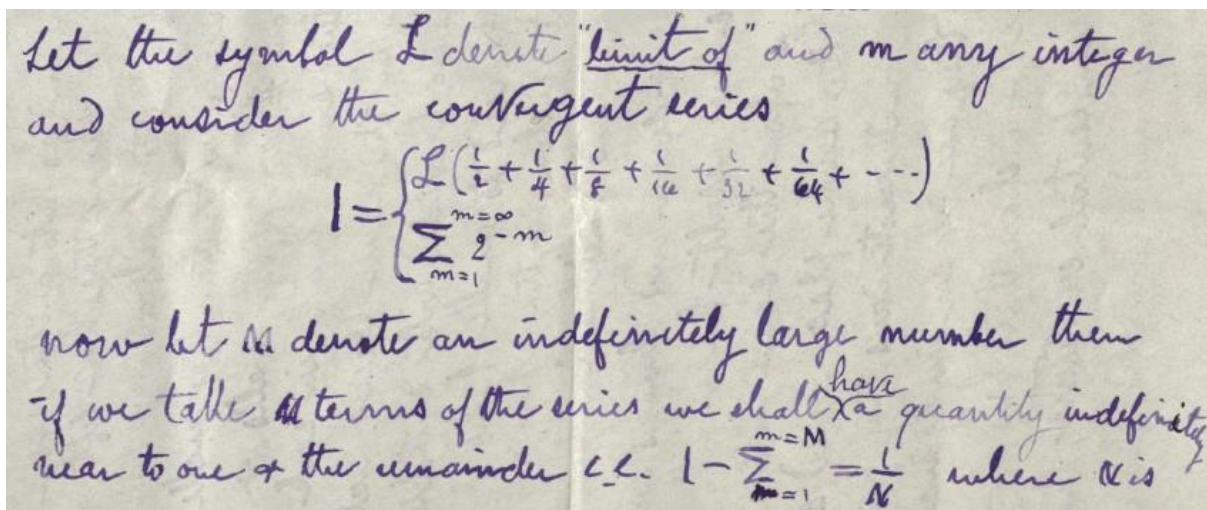 Let the symbol ℒ denote "limit of" and m any integer
and consider the convergent series
1 = { ℒ(1/2 + 1/4 + 1/8 + 1/16 + 1/32 + 1/64 + ---)
∑_{m=1}^{m=∞} 2^{-m}
now let M denote an indefinitely large number then
if we take M terms of the series we shall have a quantity indefinitely
near to one & the remainder i.e. 1 - ∑_{m=1}^{m=M} = 1/N where N is